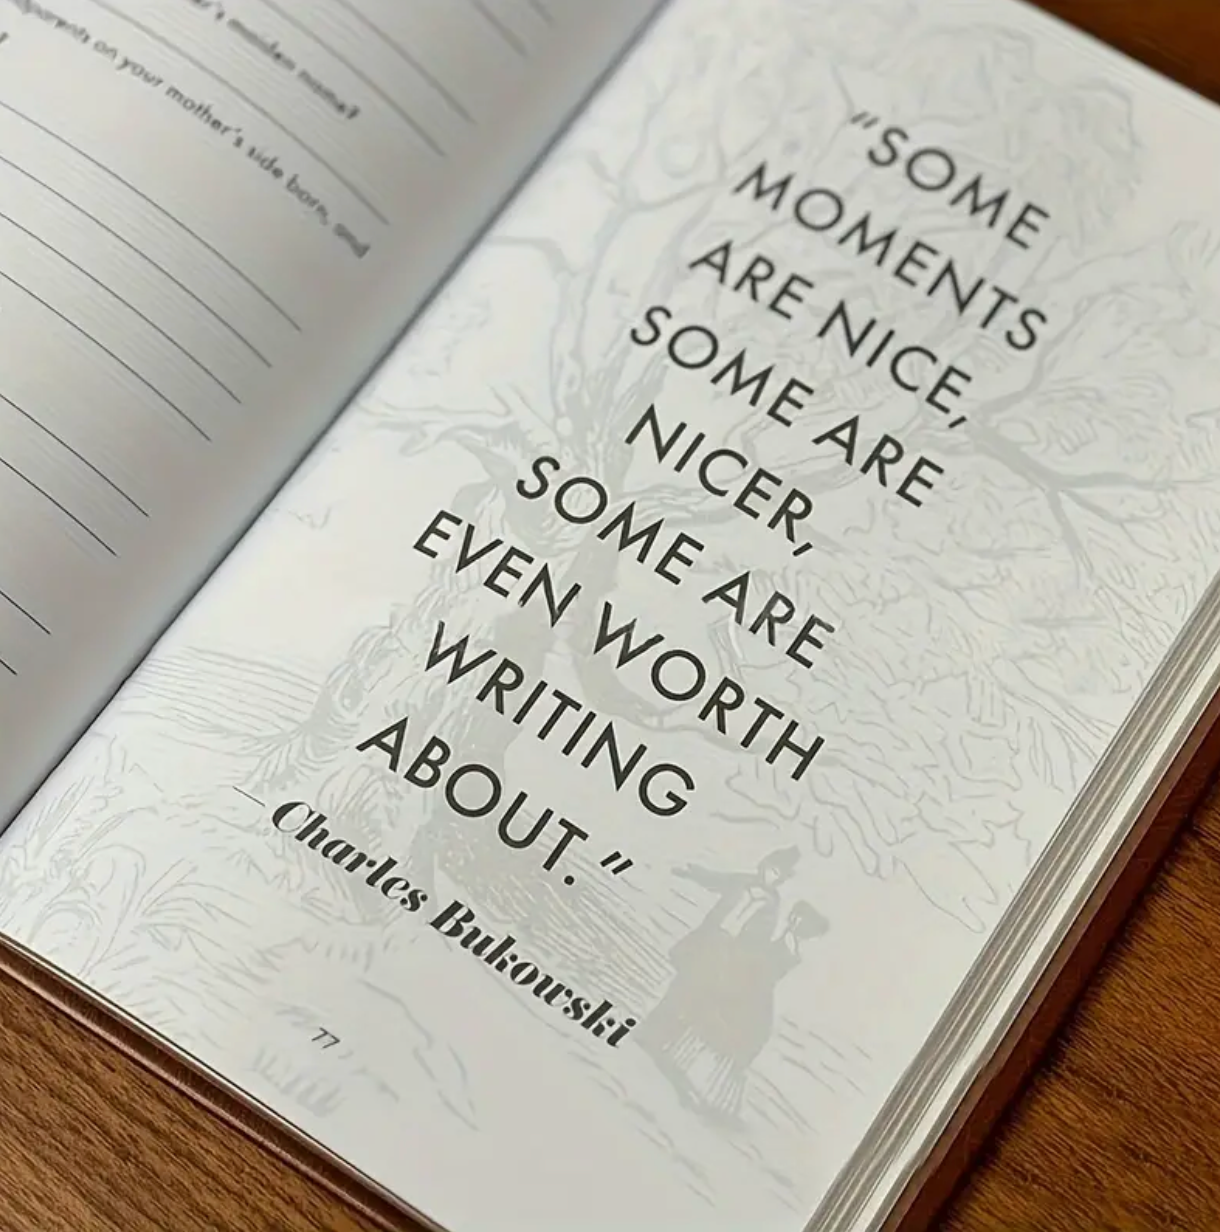 's maiden name?
parents on your mother's side born, and
"SOME
MOMENTS
ARE NICE,
SOME ARE
NICER,
SOME ARE
EVEN WORTH
WRITING
ABOUT."
—Charles Bukowski
77